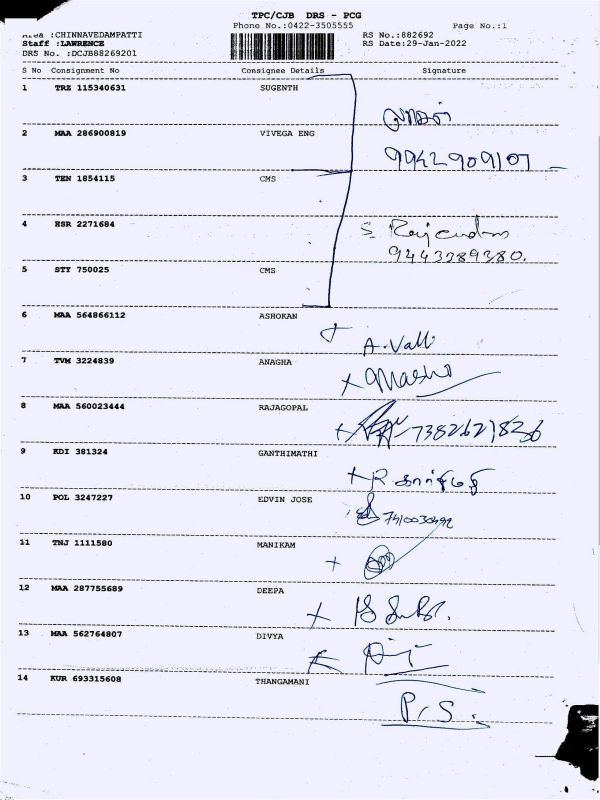 TPC/CJB DRS - PCG
Phone No.:0422-3505555 Page No.:1
Area :CHINNAVEDAMPATTI RS No.:882692
Staff :LAWRENCE RS Date:29-Jan-2022
DRS No. :DCJB88269201
S No Consignment No Consignee Details Signature
1 TRZ 115340631 SUGENTH
2 MAA 286900819 VIVEGA ENG
3 TEN 1854115 CMS
4 HSR 2271684 S. Rajendran
9443289380.
5 STY 750025 CMS
6 MAA 564866112 ASHOKAN
A. Valli
7 TVM 3224839 ANAGHA
8 MAA 560023444 RAJAGOPAL
7382621826
9 KDI 381324 GANTHIMATHI
10 POL 3247227 EDVIN JOSE
7410030492
11 TNJ 1111580 MANIKAM
12 MAA 287755689 DEEPA
13 MAA 562764807 DIVYA
14 KUR 693315608 THANGAMANI
P.S.